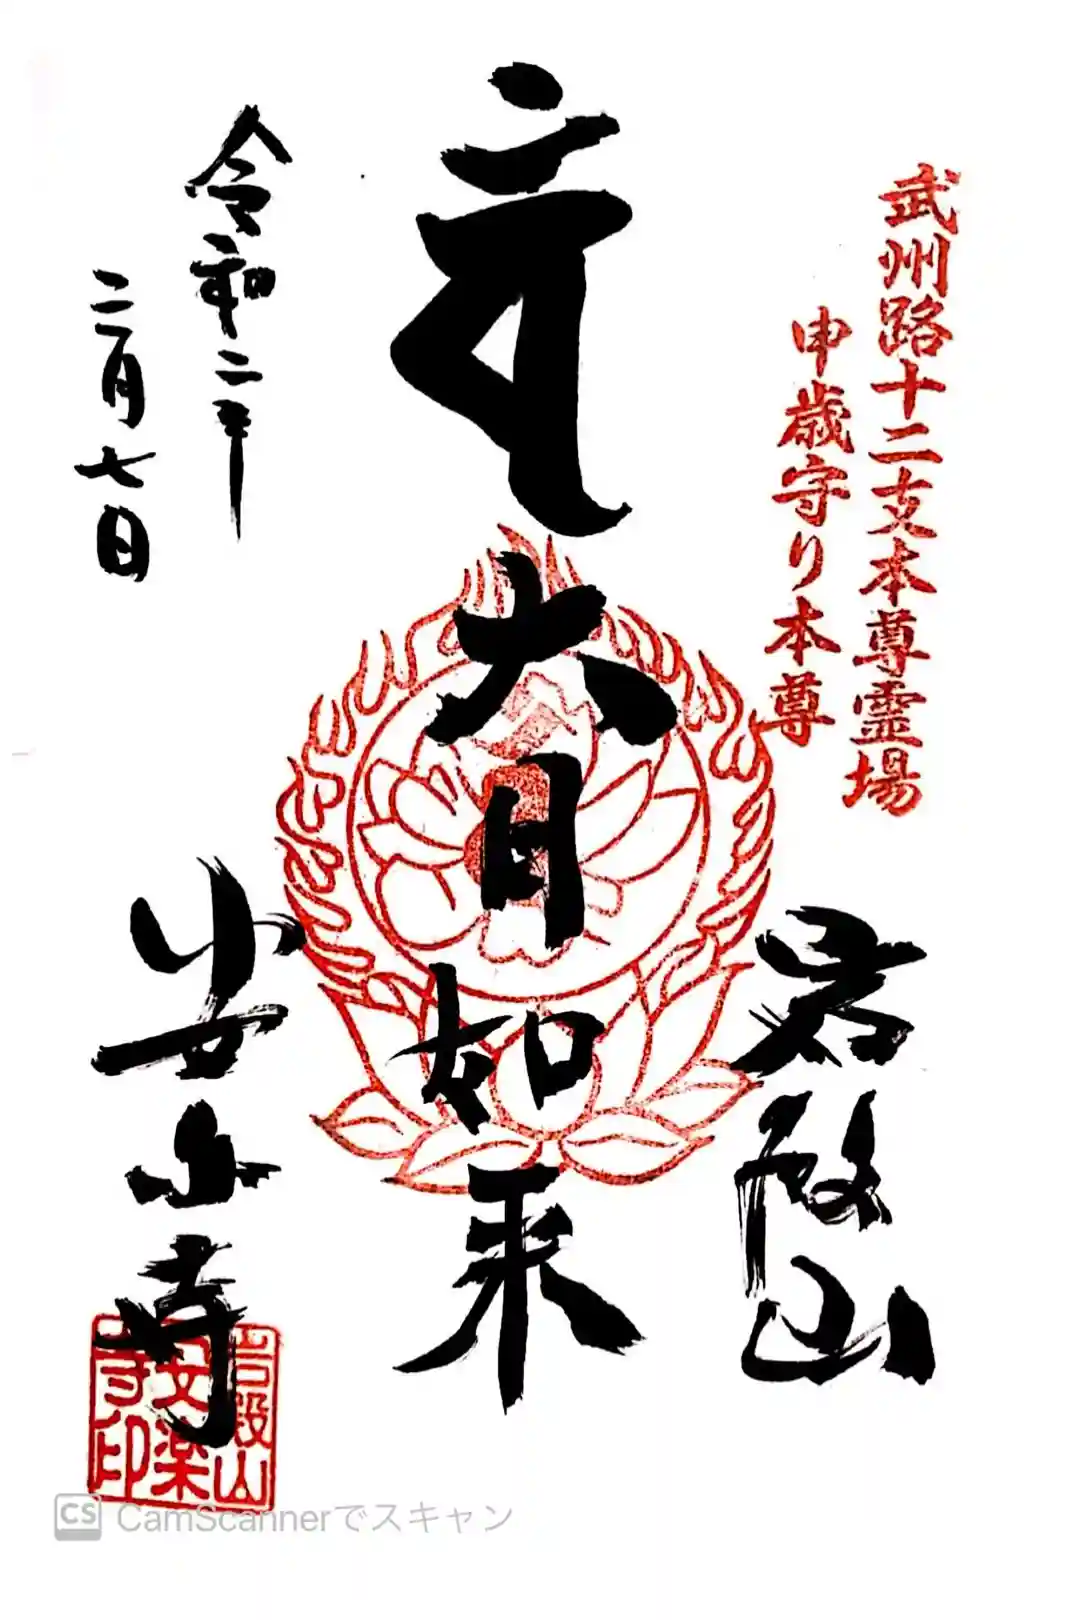 武州路十二支本尊霊場
申歳守り本尊
岩殿山
大日如来
安楽寺
令和二年
二月七日
岩殿山
安楽
寺印
CS CamScannerでスキャン